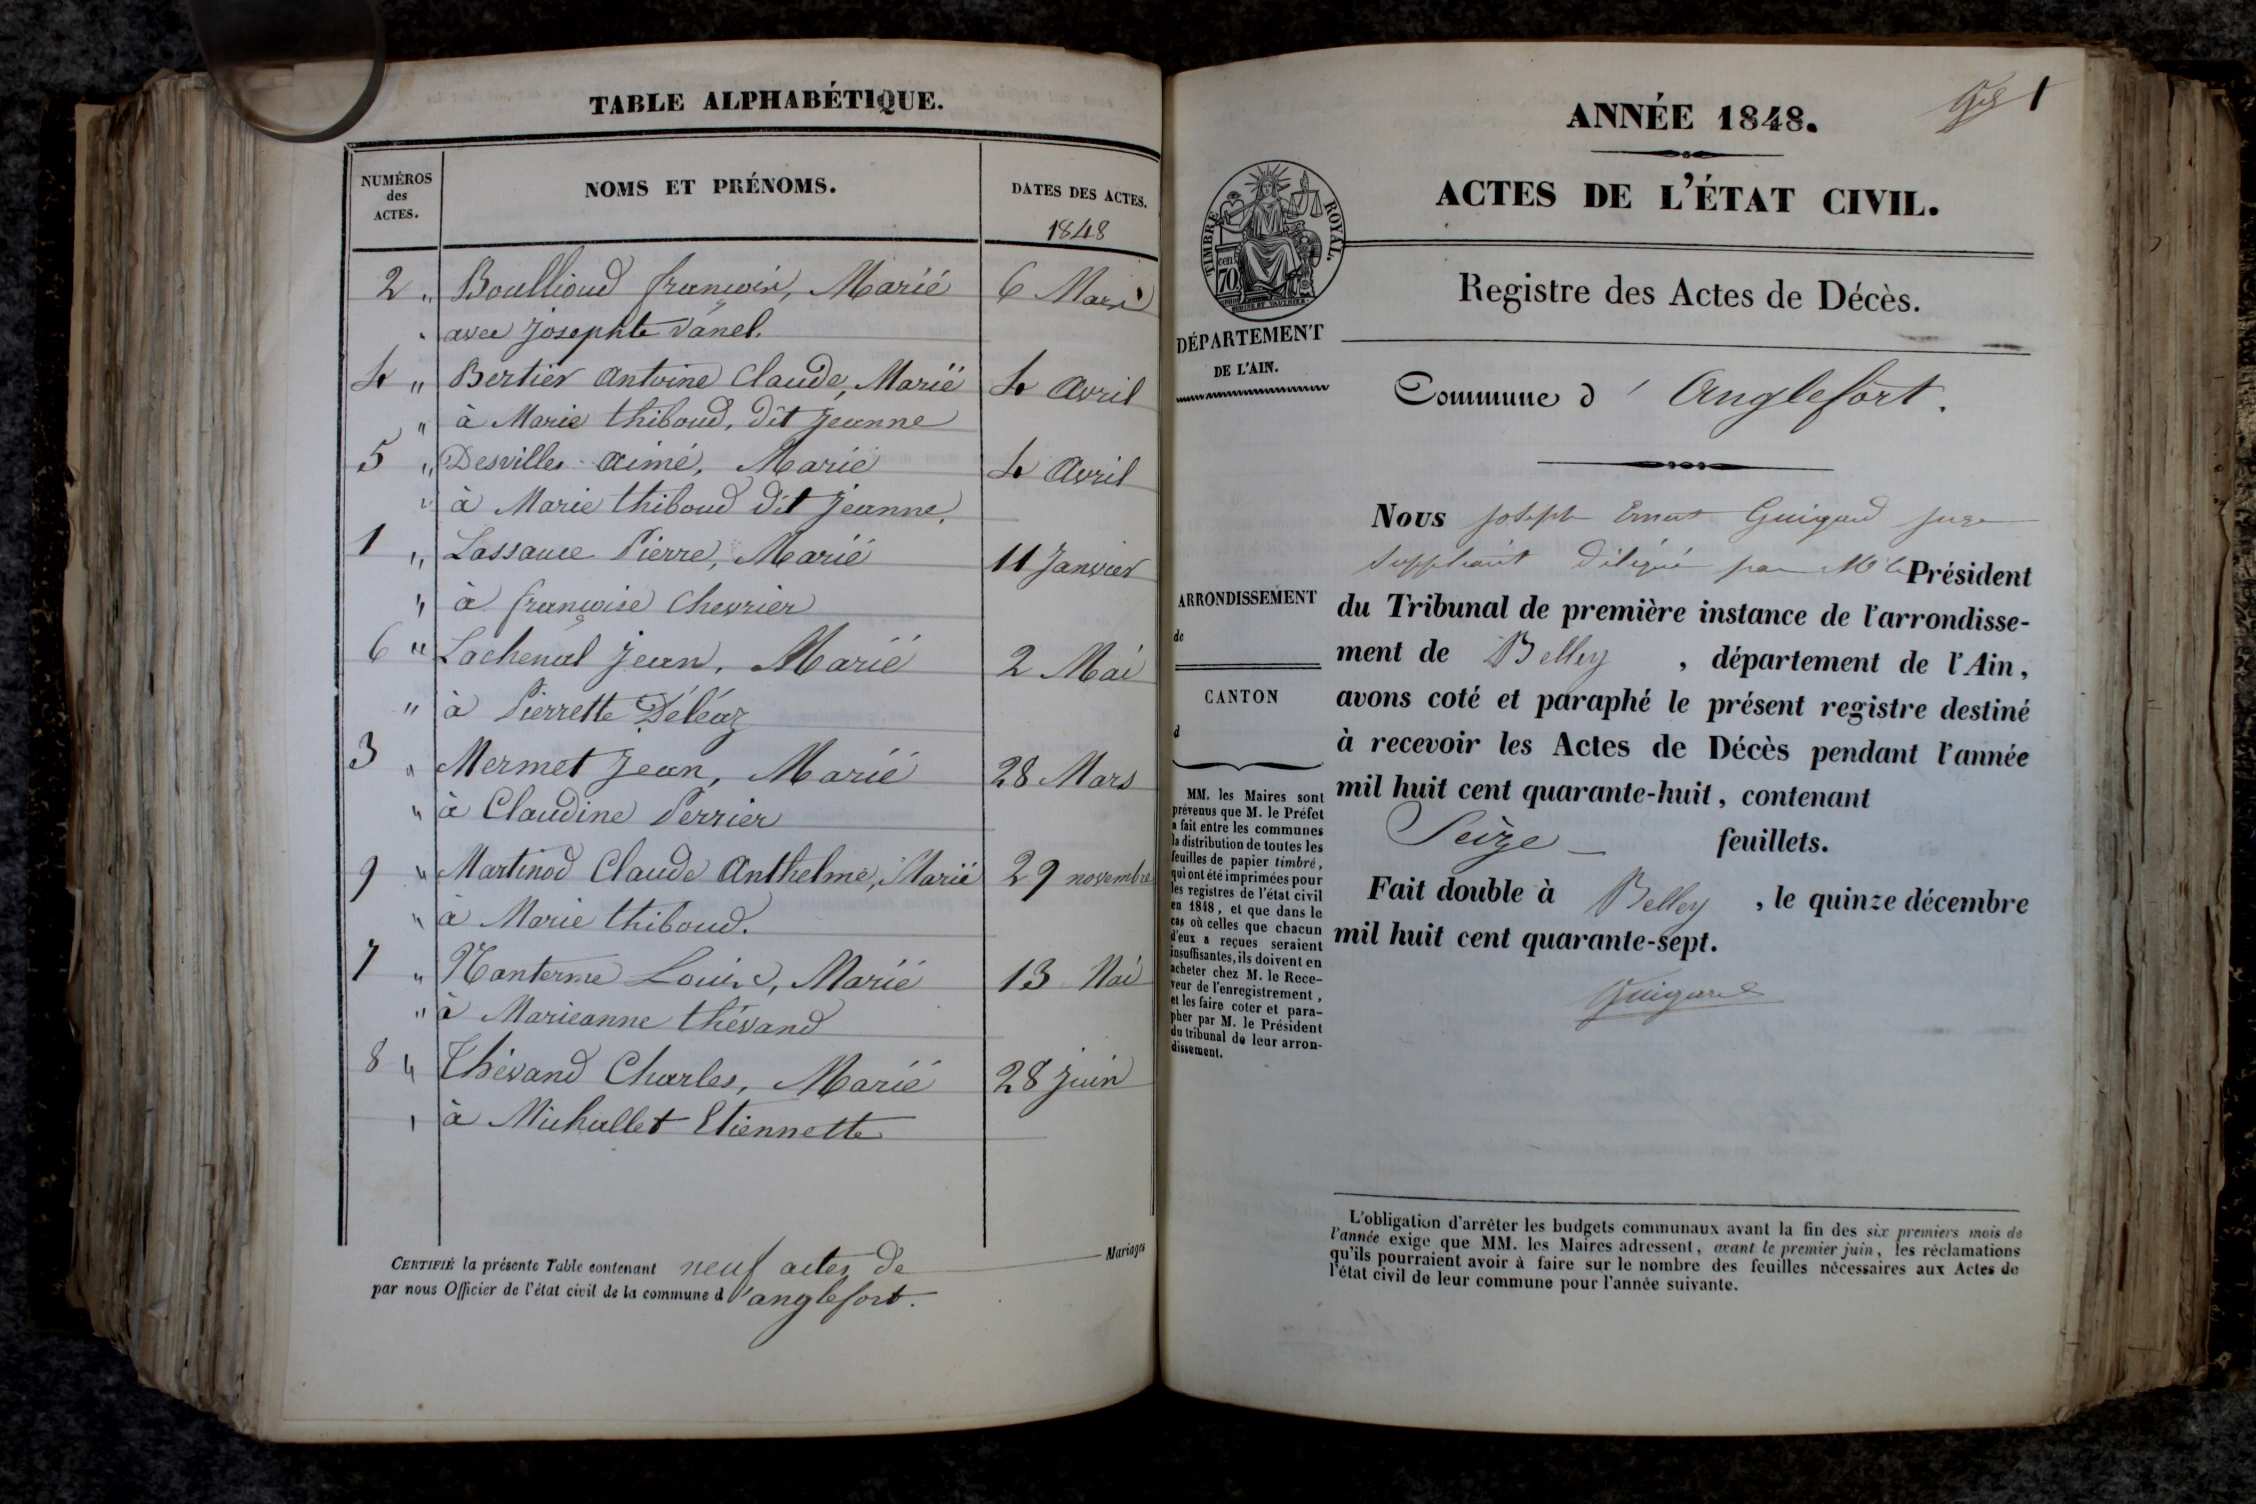 TABLE ALPHABÉTIQUE.
NUMÉROS
des
ACTES.
NOMS ET PRÉNOMS.
DATES DES ACTES.
1848
2 " Boullioud françois, Marié 6 Mars
" avec josephte Vanel.
4 " Bertier Antoine Claude, Marié 4 Avril
" à Marie thiboud, dit jeanne
5 " Desvilles aimé, Marié 4 Avril
" à Marie thiboud dit jeanne.
1 " Lassauce Pierre, Marié 11 Janvier
" à françoise Chevrier
6 " Lachenal jean, Marié 2 Mai
" à Pierrette Déléaz
3 " Mermet jean, Marié 28 Mars
" à Claudine Perrier
9 " Martinod Claude Anthelme, Marié 29 novembre
" à Marie thiboud.
7 " Nanterme Louis, Marié 13 Mai
" à Marieanne thévand
8 " Thévand Charles, Marié 28 juin
" à Michallet Etiennette
CERTIFIÉ la présente Table contenant neuf actes de Mariages
par nous Officier de l'état civil de la commune d'anglefort.
1
ANNÉE 1848.
ACTES DE L'ÉTAT CIVIL.
TIMBRE ROYAL.
70 cent
DÉPARTEMENT
DE L'AIN.
Registre des Actes de Décès.
Commune d'Anglefort.
ARRONDISSEMENT
de
CANTON
d
MM. les Maires sont
prévenus que M. le Préfet
a fait entre les communes
la distribution de toutes les
feuilles de papier timbré,
qui ont été imprimées pour
les registres de l'état civil
en 1848, et que dans le
cas où celles que chacun
d'eux a reçues seraient
insuffisantes, ils doivent en
acheter chez M. le Rece-
veur de l'enregistrement,
et les faire coter et para-
pher par M. le Président
du tribunal de leur arron-
dissement.
Nous joseph Ernest Guigard juge
suppléant délégué par Mr le Président
du Tribunal de première instance de l'arrondisse-
ment de Belley, département de l'Ain,
avons coté et paraphé le présent registre destiné
à recevoir les Actes de Décès pendant l'année
mil huit cent quarante-huit, contenant
Seize feuillets.
Fait double à Belley, le quinze décembre
mil huit cent quarante-sept.
Guigard
L'obligation d'arrêter les budgets communaux avant la fin des six premiers mois de
l'année exige que MM. les Maires adressent, avant le premier juin, les réclamations
qu'ils pourraient avoir à faire sur le nombre des feuilles nécessaires aux Actes de
l'état civil de leur commune pour l'année suivante.